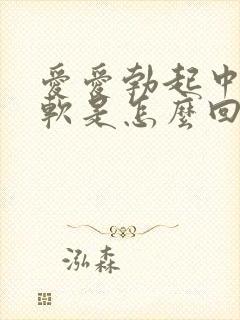 愛愛勃起中
軟是怎麼回
泓森